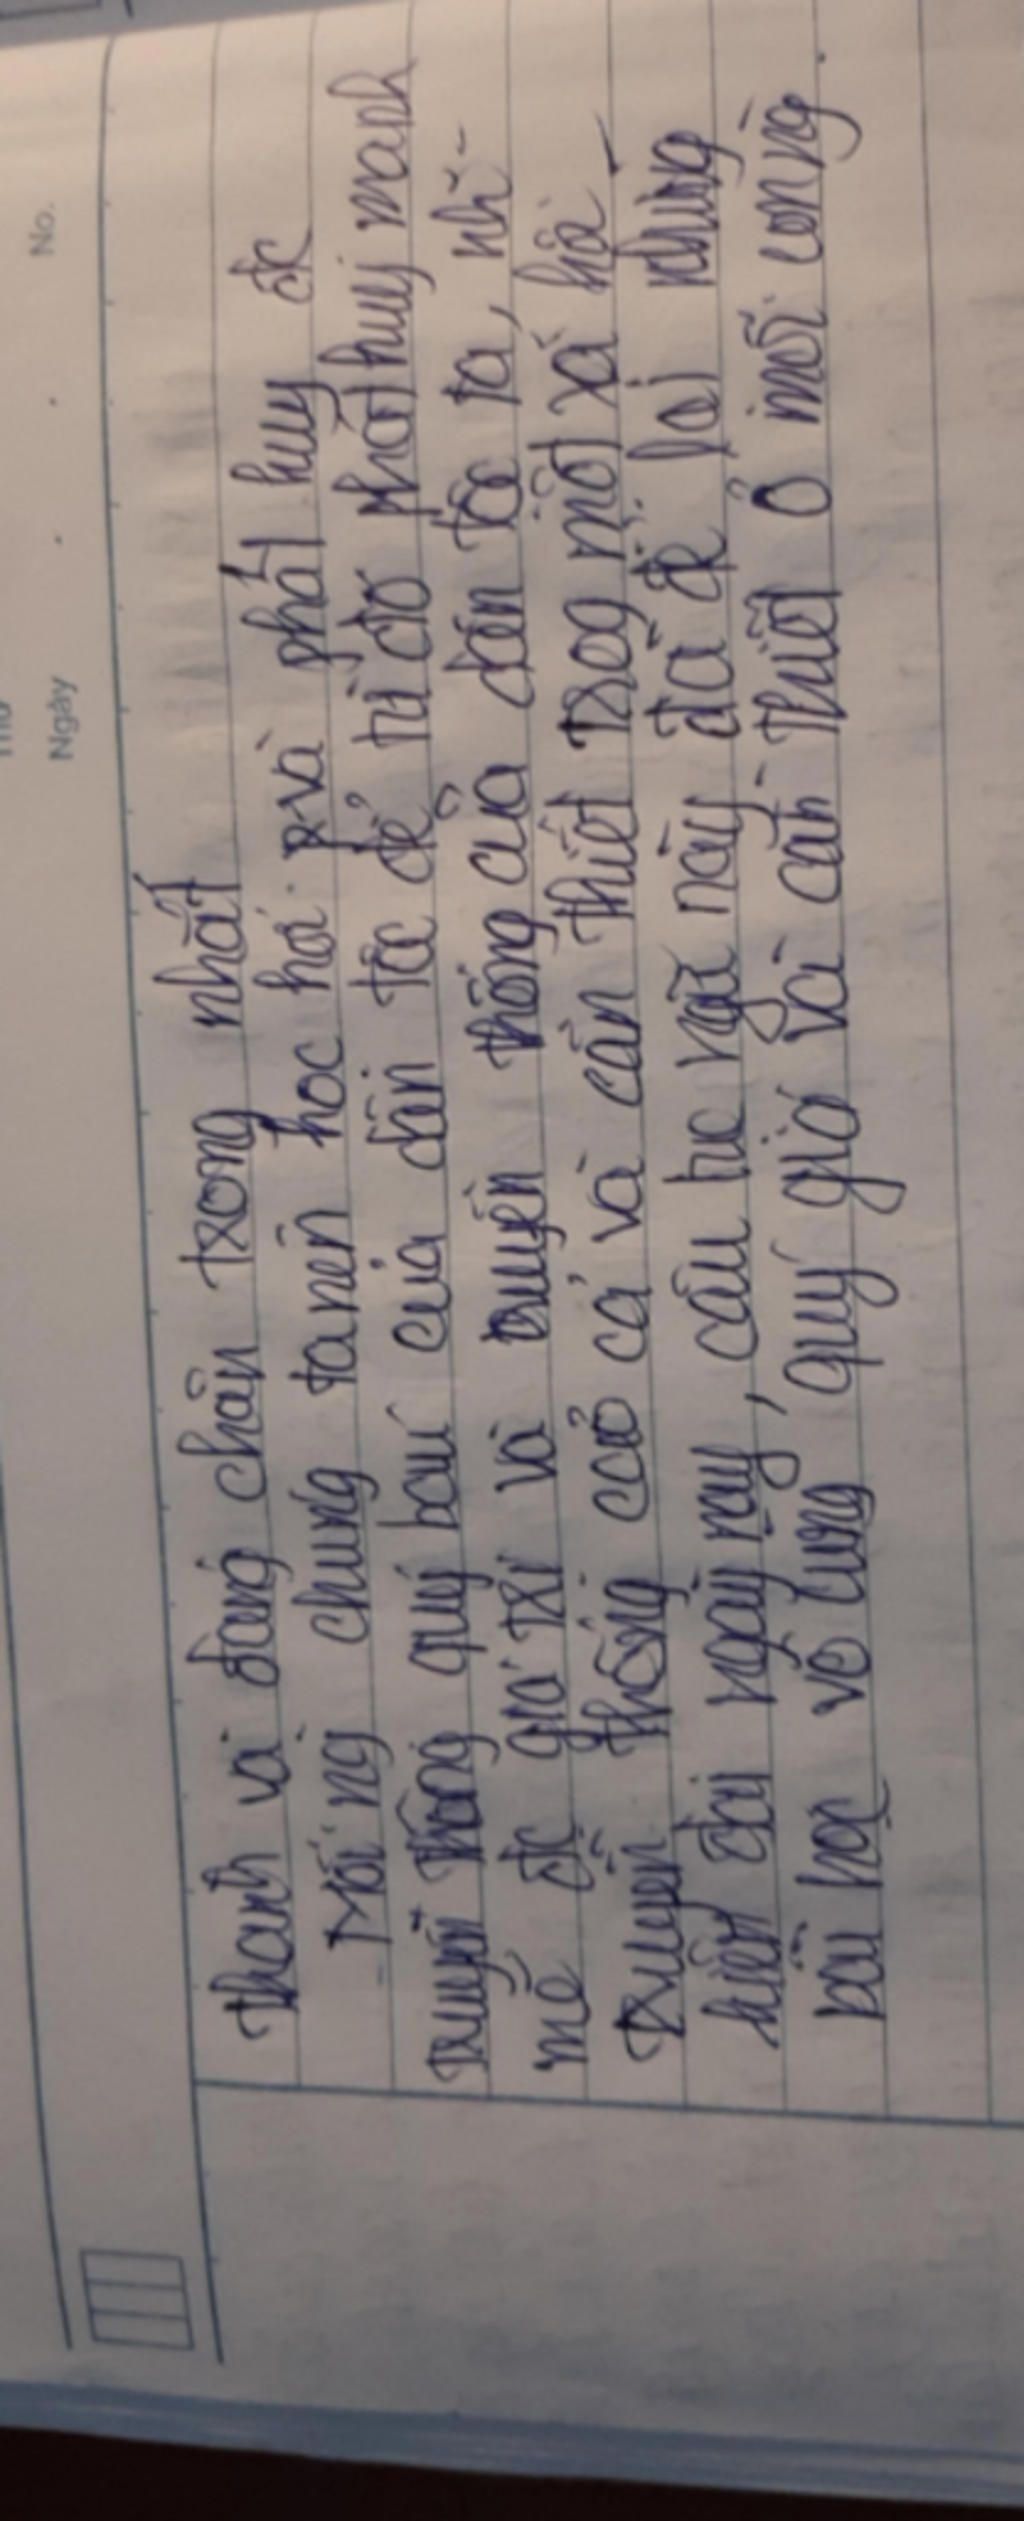 Thứ
Ngày . . No.
thành và đáng chân trong nhất
- Rồi ng chúng ta nên học hỏi và phát huy đc
truyền thống quý báu của dân tộc để từ đó phát huy mạnh
mẽ đc giá trị và truyền thống của dân tộc ta,
Truyền thống cao cả và cần thiết trog một xã hội
hiện đại ngày nay, câu tục ngữ này đã để lại những
bài học vô cùng quý giá và cần thiết ở mỗi công